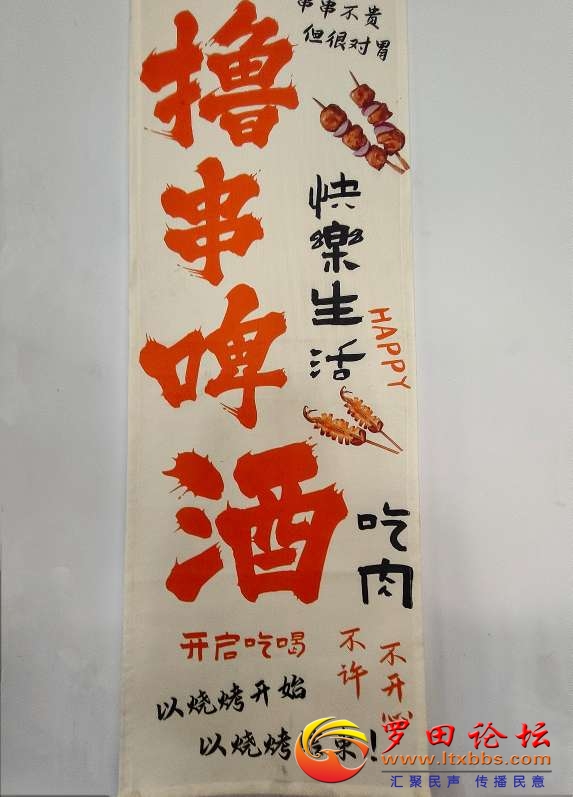 串串不贵
但很对胃
撸串啤酒
快樂生活
HAPPY
吃肉
不许
不开心
开启吃喝
以烧烤开始
以烧烤结束!
罗田论坛
www.ltxbbs.com
汇聚民声 传播民意